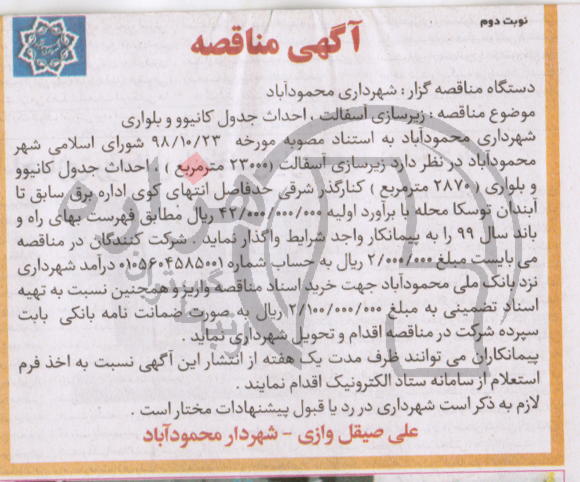 نوبت دوم
آگهی مناقصه
دستگاه مناقصه گزار : شهرداری محمودآباد
موضوع مناقصه : زیرسازی آسفالت ، احداث جدول کانیوو و بلواری
شهرداری محمودآباد به استناد مصوبه مورخه ۹۸/۱۰/۲۳ شورای اسلامی شهر
محمودآباد در نظر دارد زیرسازی آسفالت (۲۳۰۰۰ مترمربع ) ، احداث جدول کانیوو
و بلواری ( ۲۸۷۰ مترمربع ) کنارگذر شرقی حدفاصل انتهای کوی اداره برق سابق تا
آبندان توسکا محله با برآورد اولیه ۴۲/۰۰۰/۰۰۰/۰۰۰ ریال مطابق فهرست بهای راه و
باند سال ۹۹ را به پیمانکار واجد شرایط واگذار نماید . شرکت کنندگان در مناقصه
می بایست مبلغ ۲/۰۰۰/۰۰۰ ریال به حساب شماره ۰۱۰۵۶۰۴۵۸۵۰۰۱ درآمد شهرداری
نزد بانک ملی محمودآباد جهت خرید اسناد مناقصه واریز و همچنین نسبت به تهیه
اسناد تضمینی به مبلغ ۲/۱۰۰/۰۰۰/۰۰۰ ریال به صورت ضمانت نامه بانکی بابت
سپرده شرکت در مناقصه اقدام و تحویل شهرداری نماید .
پیمانکاران می توانند ظرف مدت یک هفته از انتشار این آگهی نسبت به اخذ فرم
استعلام از سامانه ستاد الکترونیک اقدام نمایند .
لازم به ذکر است شهرداری در رد یا قبول پیشنهادات مختار است .
علی صیقل وازی - شهردار محمودآباد